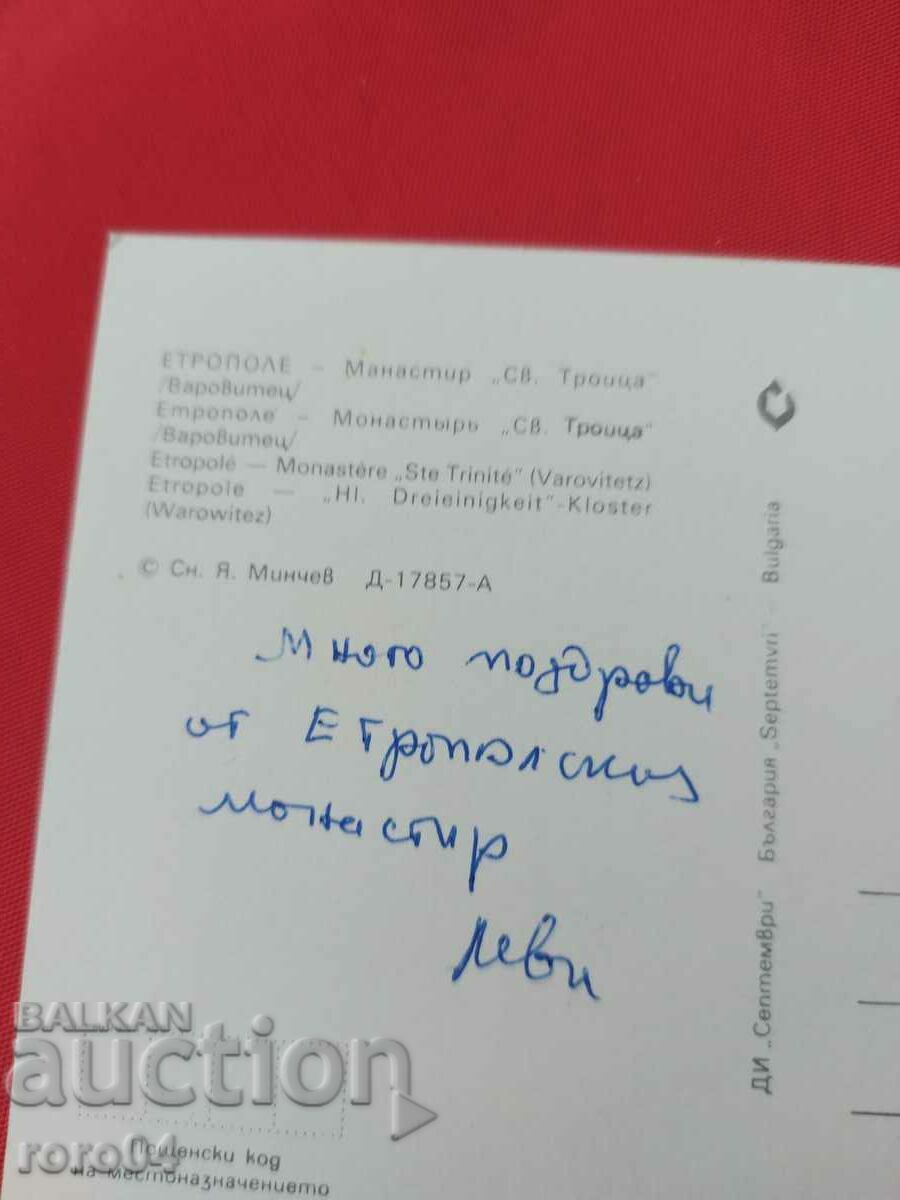 ЕТРОПОЛЕ – Манастир „Св. Троица"
/Варовитец/
Етрополе – Монастырь „Св. Троица"
/Варовитец/
Etropolé — Monastère „Ste Trinité" (Varovitetz)
Etropole — „Hl. Dreieinigkeit"-Kloster
(Warowitez)
© Сн. Я. Минчев Д-17857-А
Много поздрави
от Етрополския
монастир
Леви
ДИ „Септември" България „Septemvri" - Bulgaria
BALKAN
auction
roro04
Пощенски код
на местоназначението